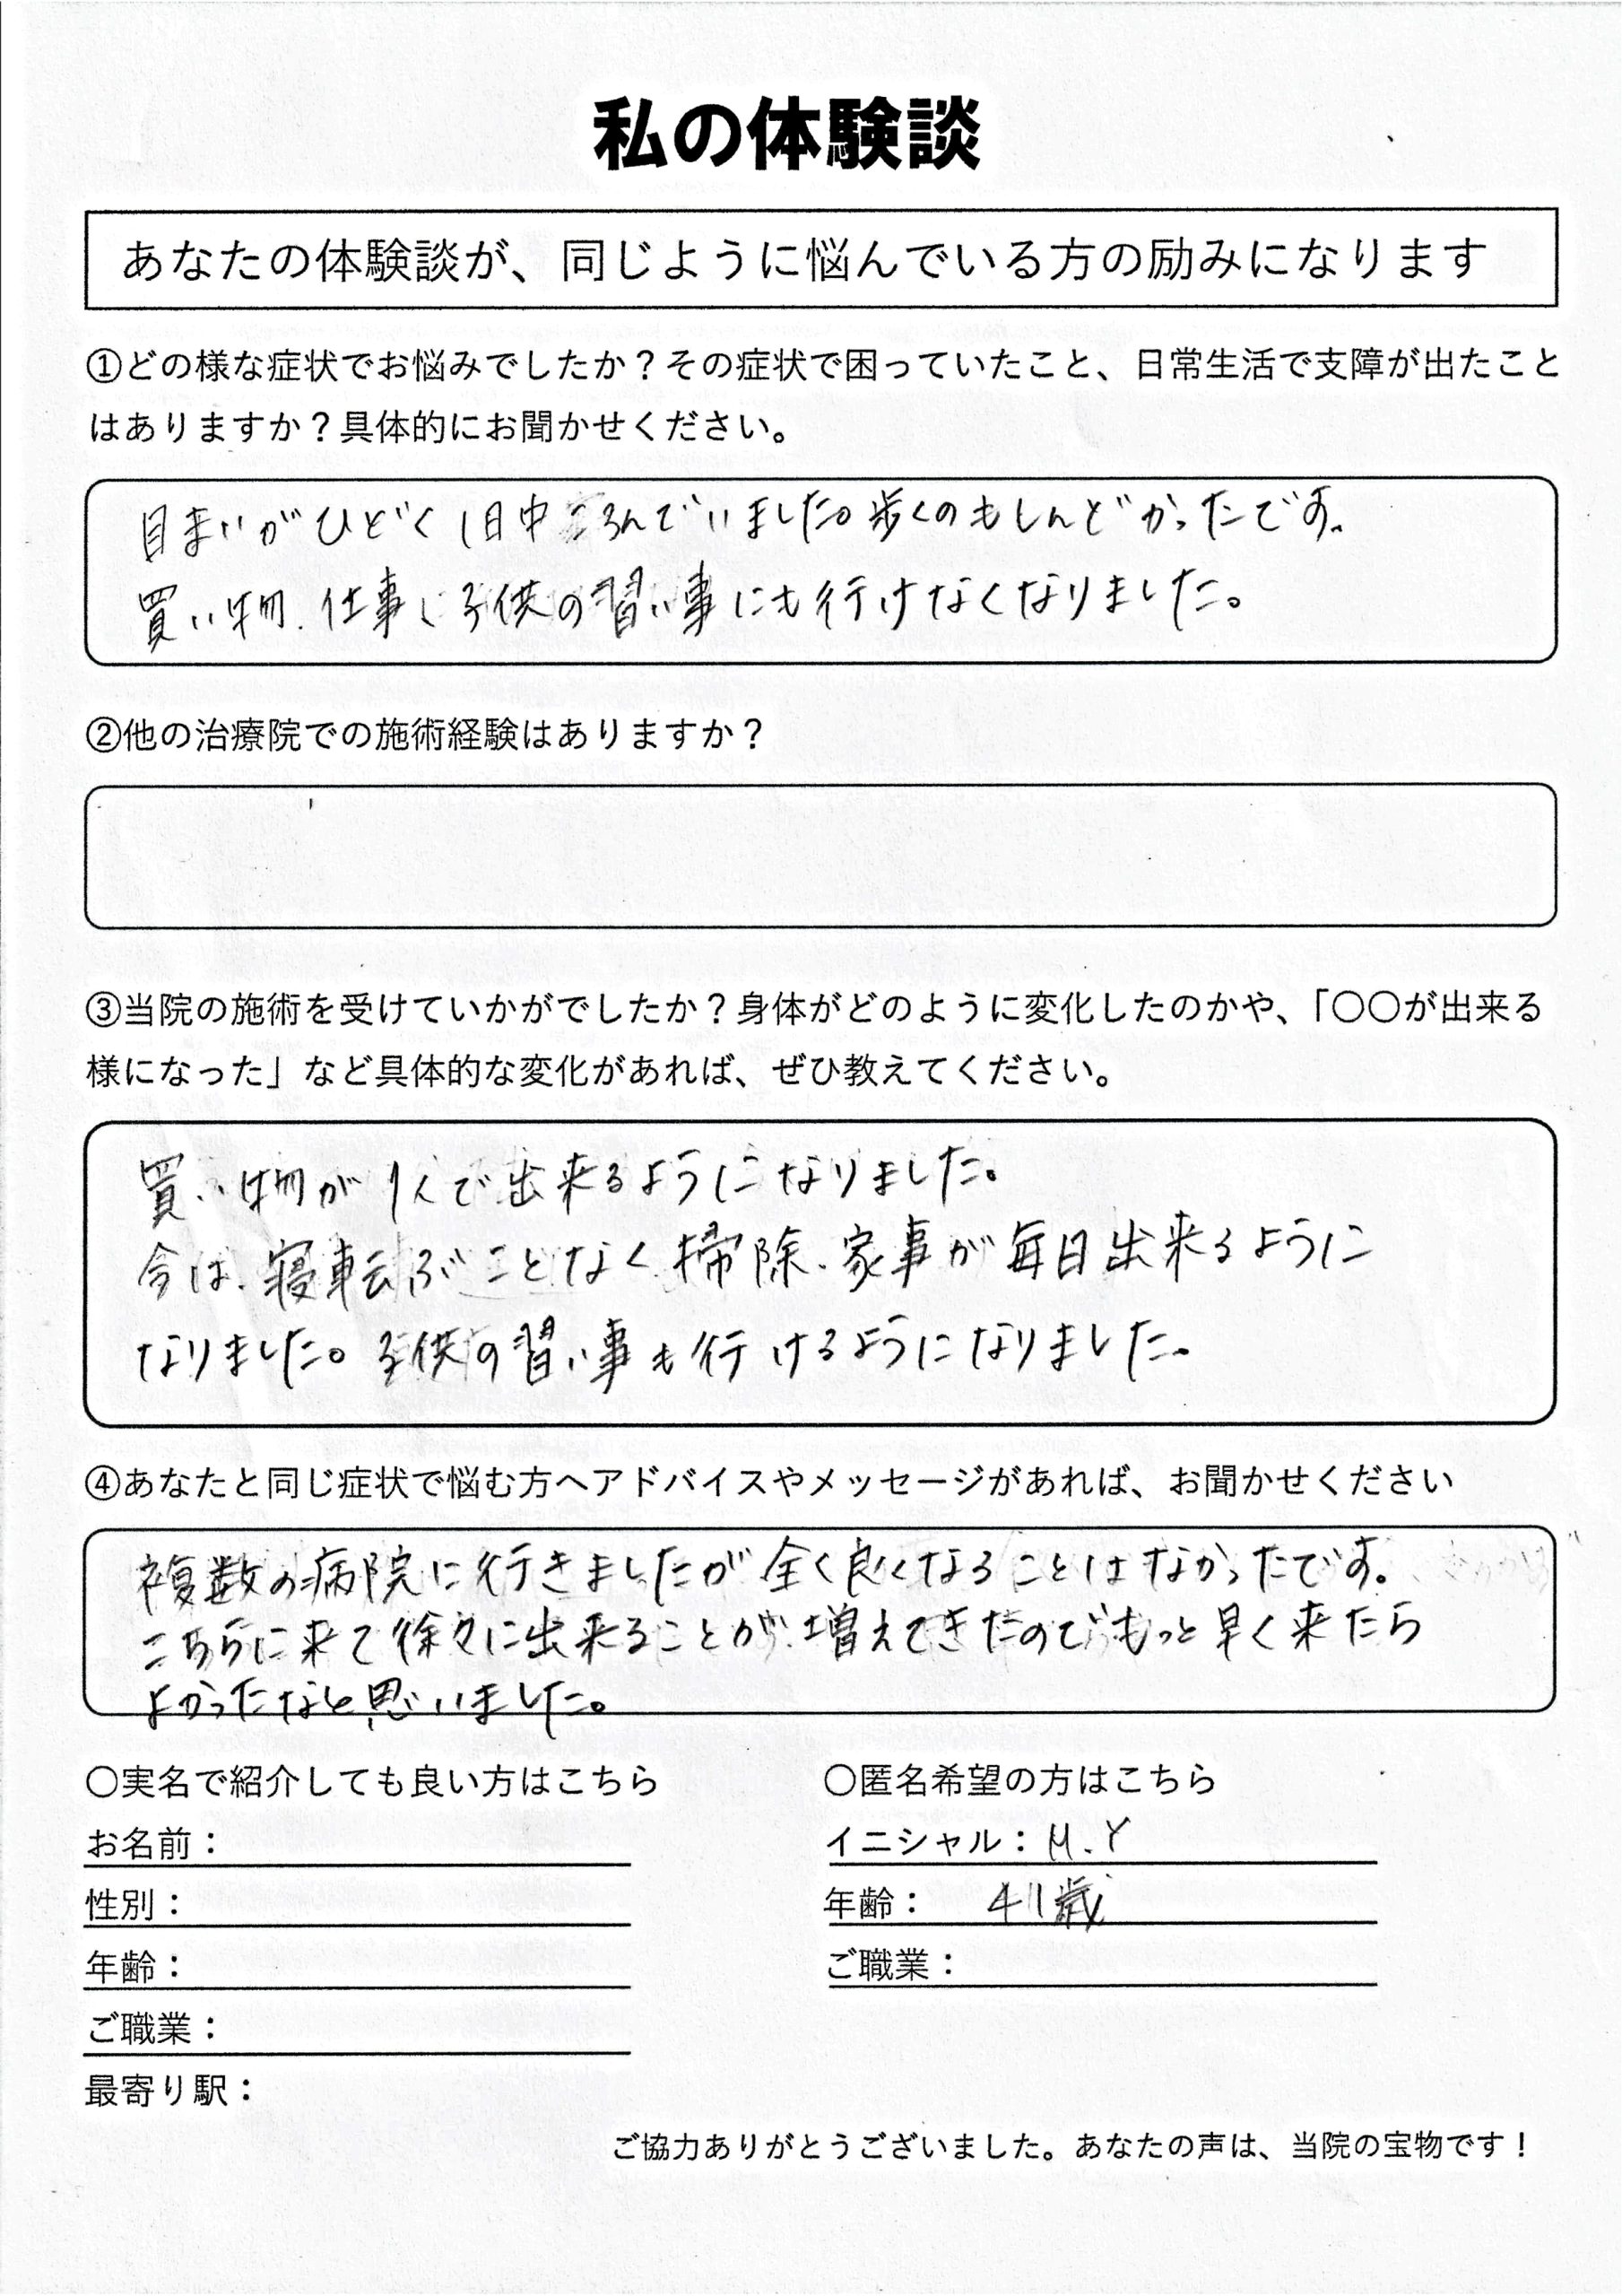 私の体験談
あなたの体験談が、同じように悩んでいる方の励みになります
①どの様な症状でお悩みでしたか？その症状で困っていたこと、日常生活で支障が出たこと
はありますか？具体的にお聞かせください。
目まいがひどく1日中ころんでいました。歩くのもしんどかったです。
買い物、仕事、子供の習い事にも行けなくなりました。
②他の治療院での施術経験はありますか？
③当院の施術を受けていかがでしたか？身体がどのように変化したのかや、「〇〇が出来る
様になった」など具体的な変化があれば、ぜひ教えてください。
買い物が1人で出来るようになりました。
今は、寝転ぶことなく、掃除、家事が毎日出来るように
なりました。子供の習い事も行けるようになりました。
④あなたと同じ症状で悩む方へアドバイスやメッセージがあれば、お聞かせください
複数の病院に行きましたが全く良くなることはなかったです。
こちらに来て徐々に出来ることが増えてきたのでもっと早く来たら
よかったなと思いました。
〇実名で紹介しても良い方はこちら
お名前：
性別：
年齢：
ご職業：
最寄り駅：
〇匿名希望の方はこちら
イニシャル：M.Y
年齢： 41歳
ご職業：
ご協力ありがとうございました。あなたの声は、当院の宝物です！